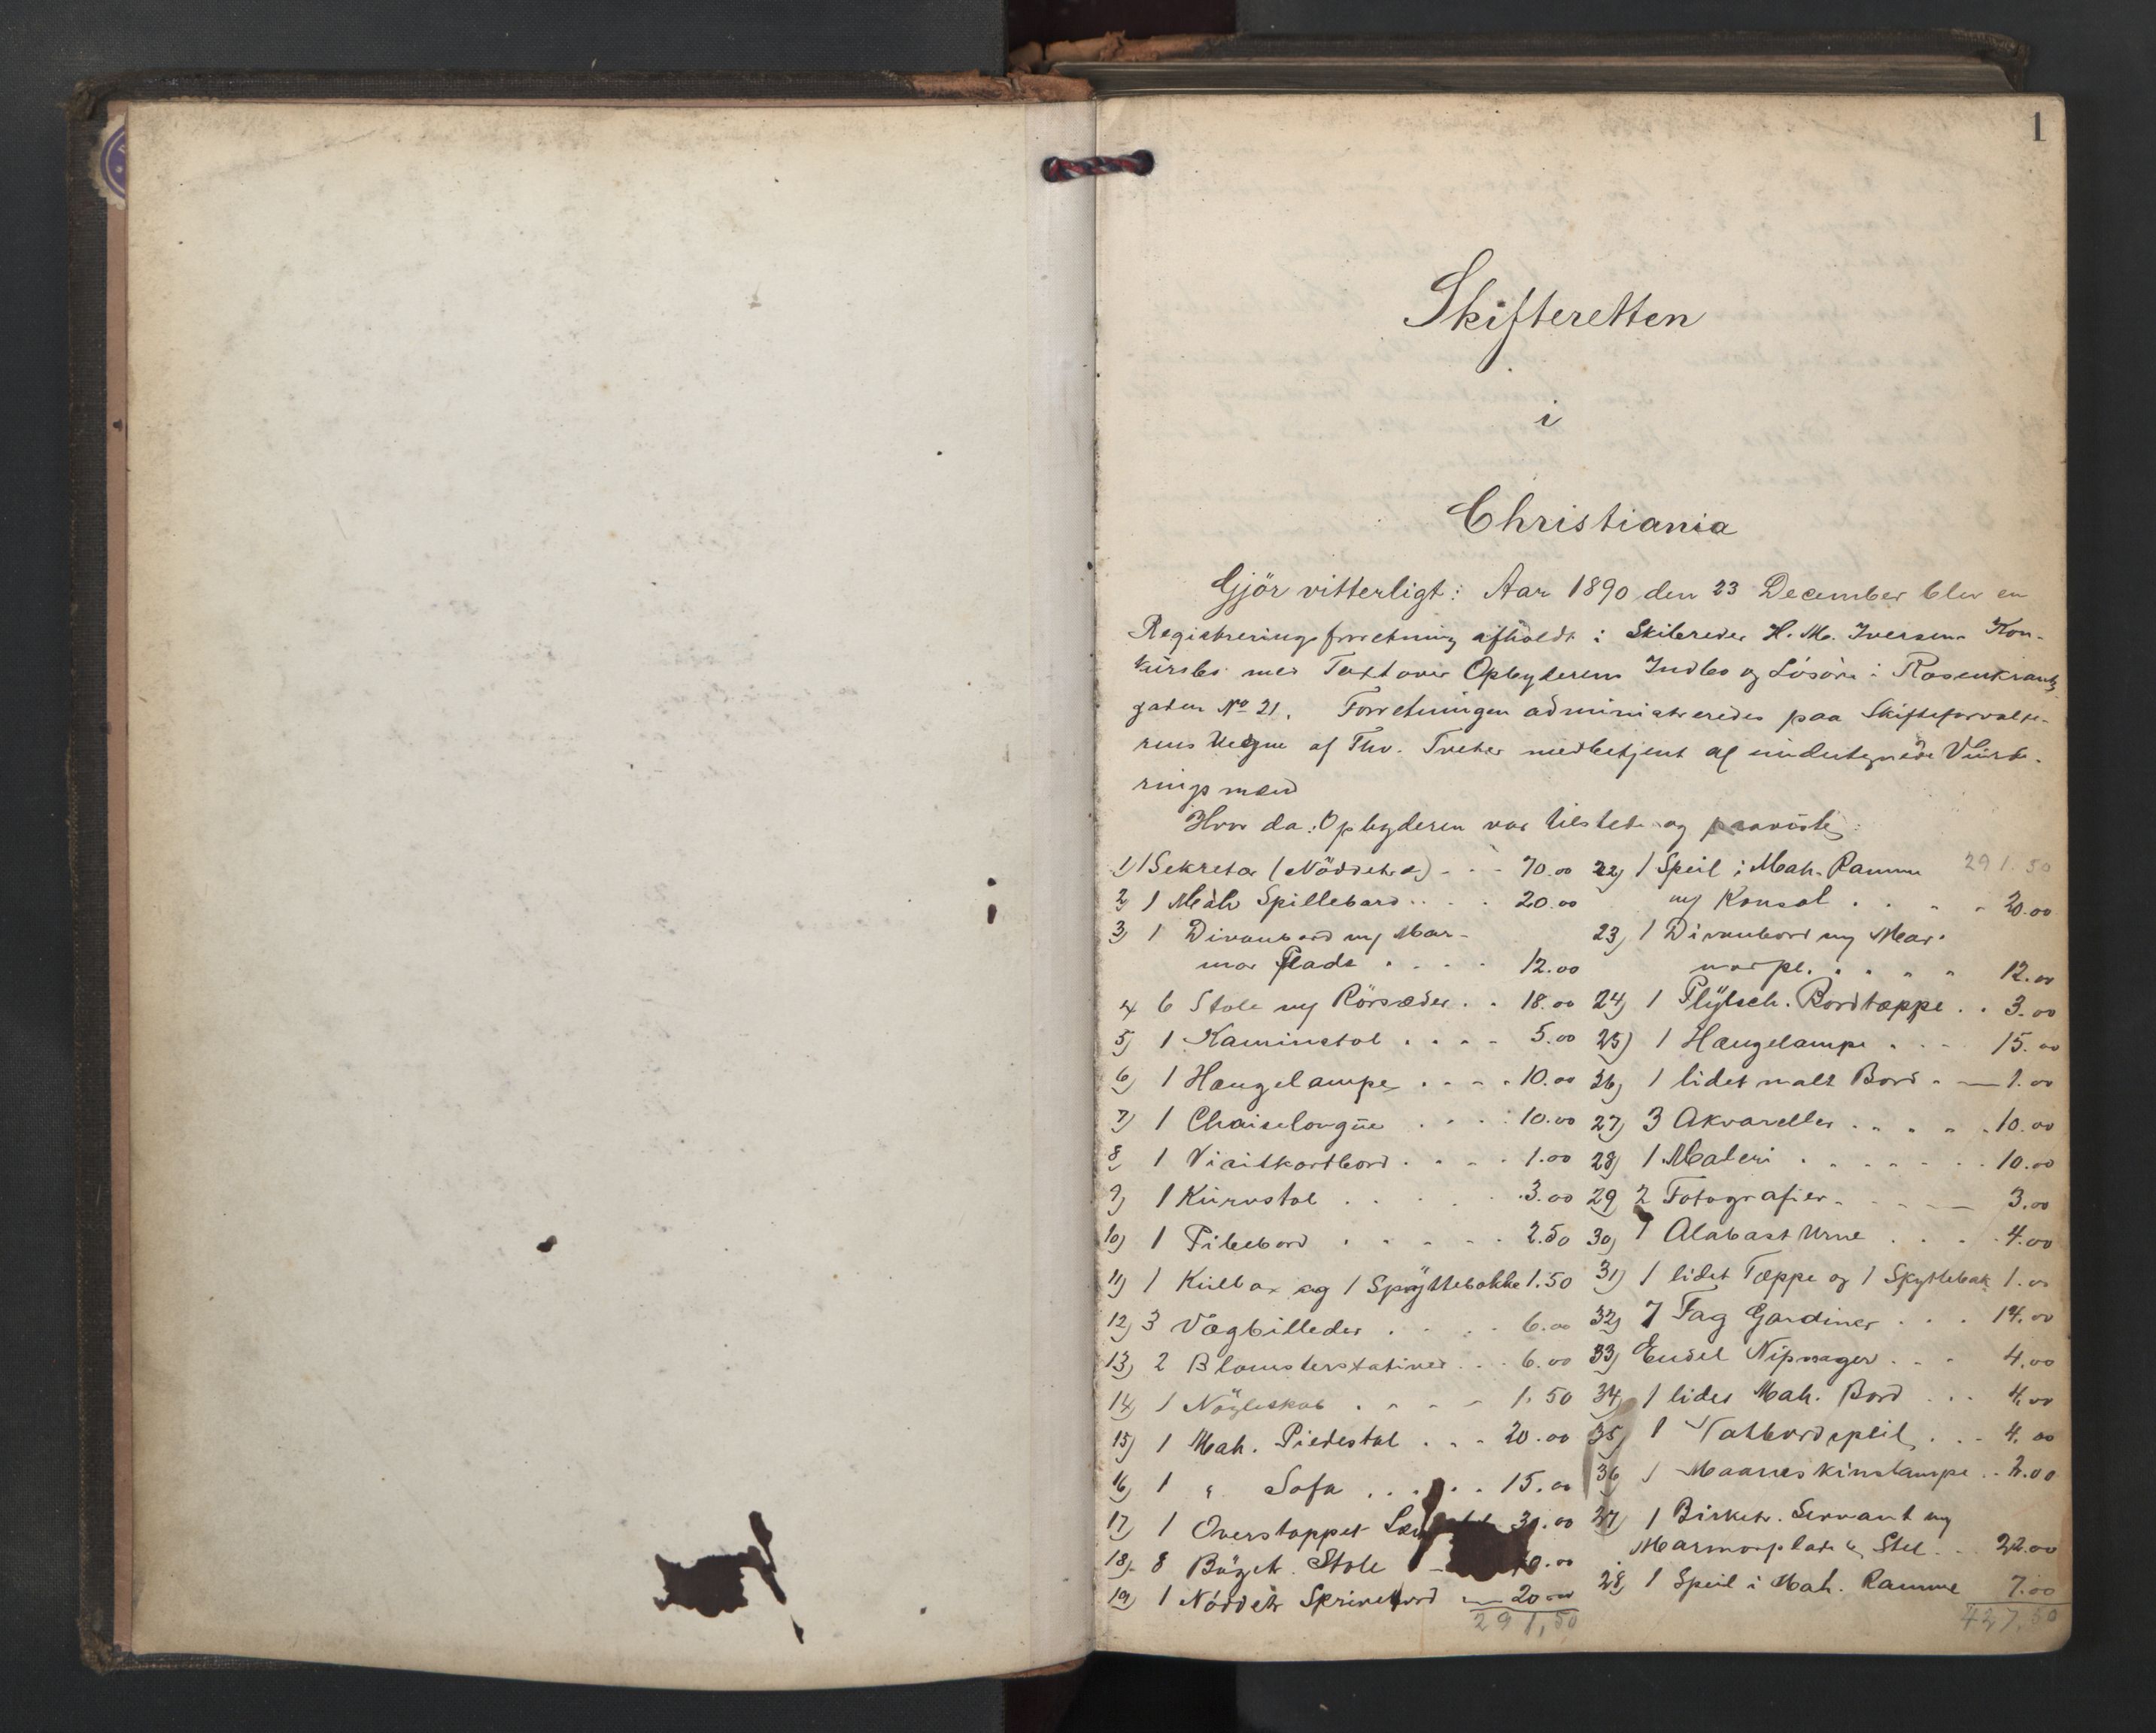 1
Skifteretten
i
Christiania
Gjör vitterligt: Aar 1890 den 23 December blev en
Registreringsforretning afholdt i Skibsreder H. M. Iversens Kon-
kursbo med Taxt over Opbyderens Indbo og Lösöre i Rosenkrantz
gaden No 21. Forretningen administreredes paa Skifteforvalte-
rens Vegne af Thv. Tveter medbetjent af undertegnede Vurde-
ringsmænd
Hvor da: Opbyderen var tilstede og paaviste:
1) 1 Sekretær (Nöddetræ) - - - 70.00
2) 1 Mah Spillebord . . . . 20.00
3) 1 Divanbord m/ Mar-
mor Plade . . . . 12.00
4) 6 Stole m/ Rörsæder . . 18.00
5) 1 Kaminstol . . . . 5.00
6) 1 Hængelampe . . . . 10.00
7) 1 Chaiselongue . . . . 10.00
8) 1 Visitkortbord . . . . 1.00
9) 1 Kurvstol . . . . . 3.00
10) 1 Pibebord . . . . . 2.50
11) 1 Kulbox og 1 Spyttebakke 1.50
12) 3 Vægbilleder . . . . 6.00
13) 2 Blomsterstativer . . . 6.00
14) 1 Nögleskab . . . . 1.50
15) 1 Mah. Piedestal . . . 20.00
16) 1 " Sofa . . . . . 15.00
17) 1 Overstoppet 30.00
18) 8 Bögetr. Stole
19) 1 Nöddetr Skrivebord — 20.00
291,50
291.50
22) 1 Speil i Mah. Ramme
m/ Konsol . . . . 20.00
23) 1 Divanbord m/ Mar-
morpl. . . . . 12.00
24) 1 Plytsch. Bordtæppe . . 3.00
25) 1 Hængelampe . . . 15.00
26) 1 lidet malt Bord . — 1.00
27) 3 Akvareller . . . . . 10.00
28) 1 Maleri . . . . . . 10.00
29 2 Fotografier . . . . 3.00
30) 1 Alabast Urne . . . . 4.00
31) 1 lidet Tæppe og 1 Spyttebak 1.00
32) 7 Fag Gardiner . . . 14.00
33) Endel Nipsager . . . 4.00
34) 1 lidet Mah. Bord . . . 4.00
35) 1 Natbordspeil . . . 4.00
36 1 Maaneskinslampe . . 2.00
37) 1 Birketr. Servant m/
Marmorplade & Stel . . 22.00
28) 1 Speil i Mah. Ramme 7.00
427,50